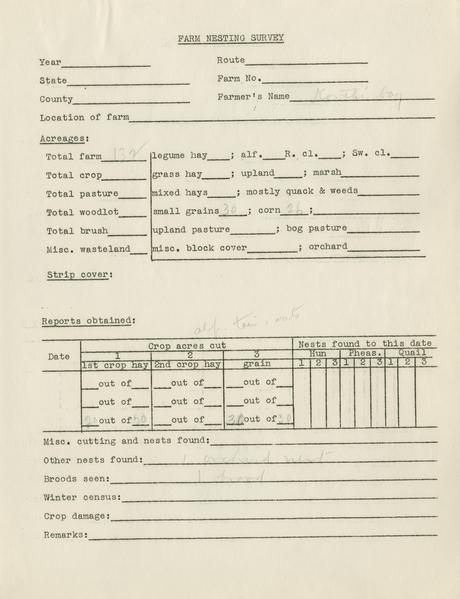 FARM NESTING SURVEY
Year Route
State Farm No.
County Farmer's Name
Location of farm
Acreages:
Total farm 132 legume hay ; alf. R. cl. ; Sw. cl.
Total crop grass hay ; upland ; marsh
Total pasture mixed hays ; mostly quack & weeds
Total woodlot small grains 30 ; corn 26 ;
Total brush upland pasture ; bog pasture
Misc. wasteland misc. block cover ; orchard
Strip cover:
Reports obtained:
Crop acres cut Nests found to this date
Date 1 2 3 Hun Pheas. Quail
1st crop hay 2nd crop hay grain 1 2 3 1 2 3 1 2 3
out of out of out of
out of out of out of
out of 30 out of 30 out of 30
Misc. cutting and nests found:
Other nests found: 1 orchard nest
Broods seen: 1 brood
Winter census:
Crop damage:
Remarks: